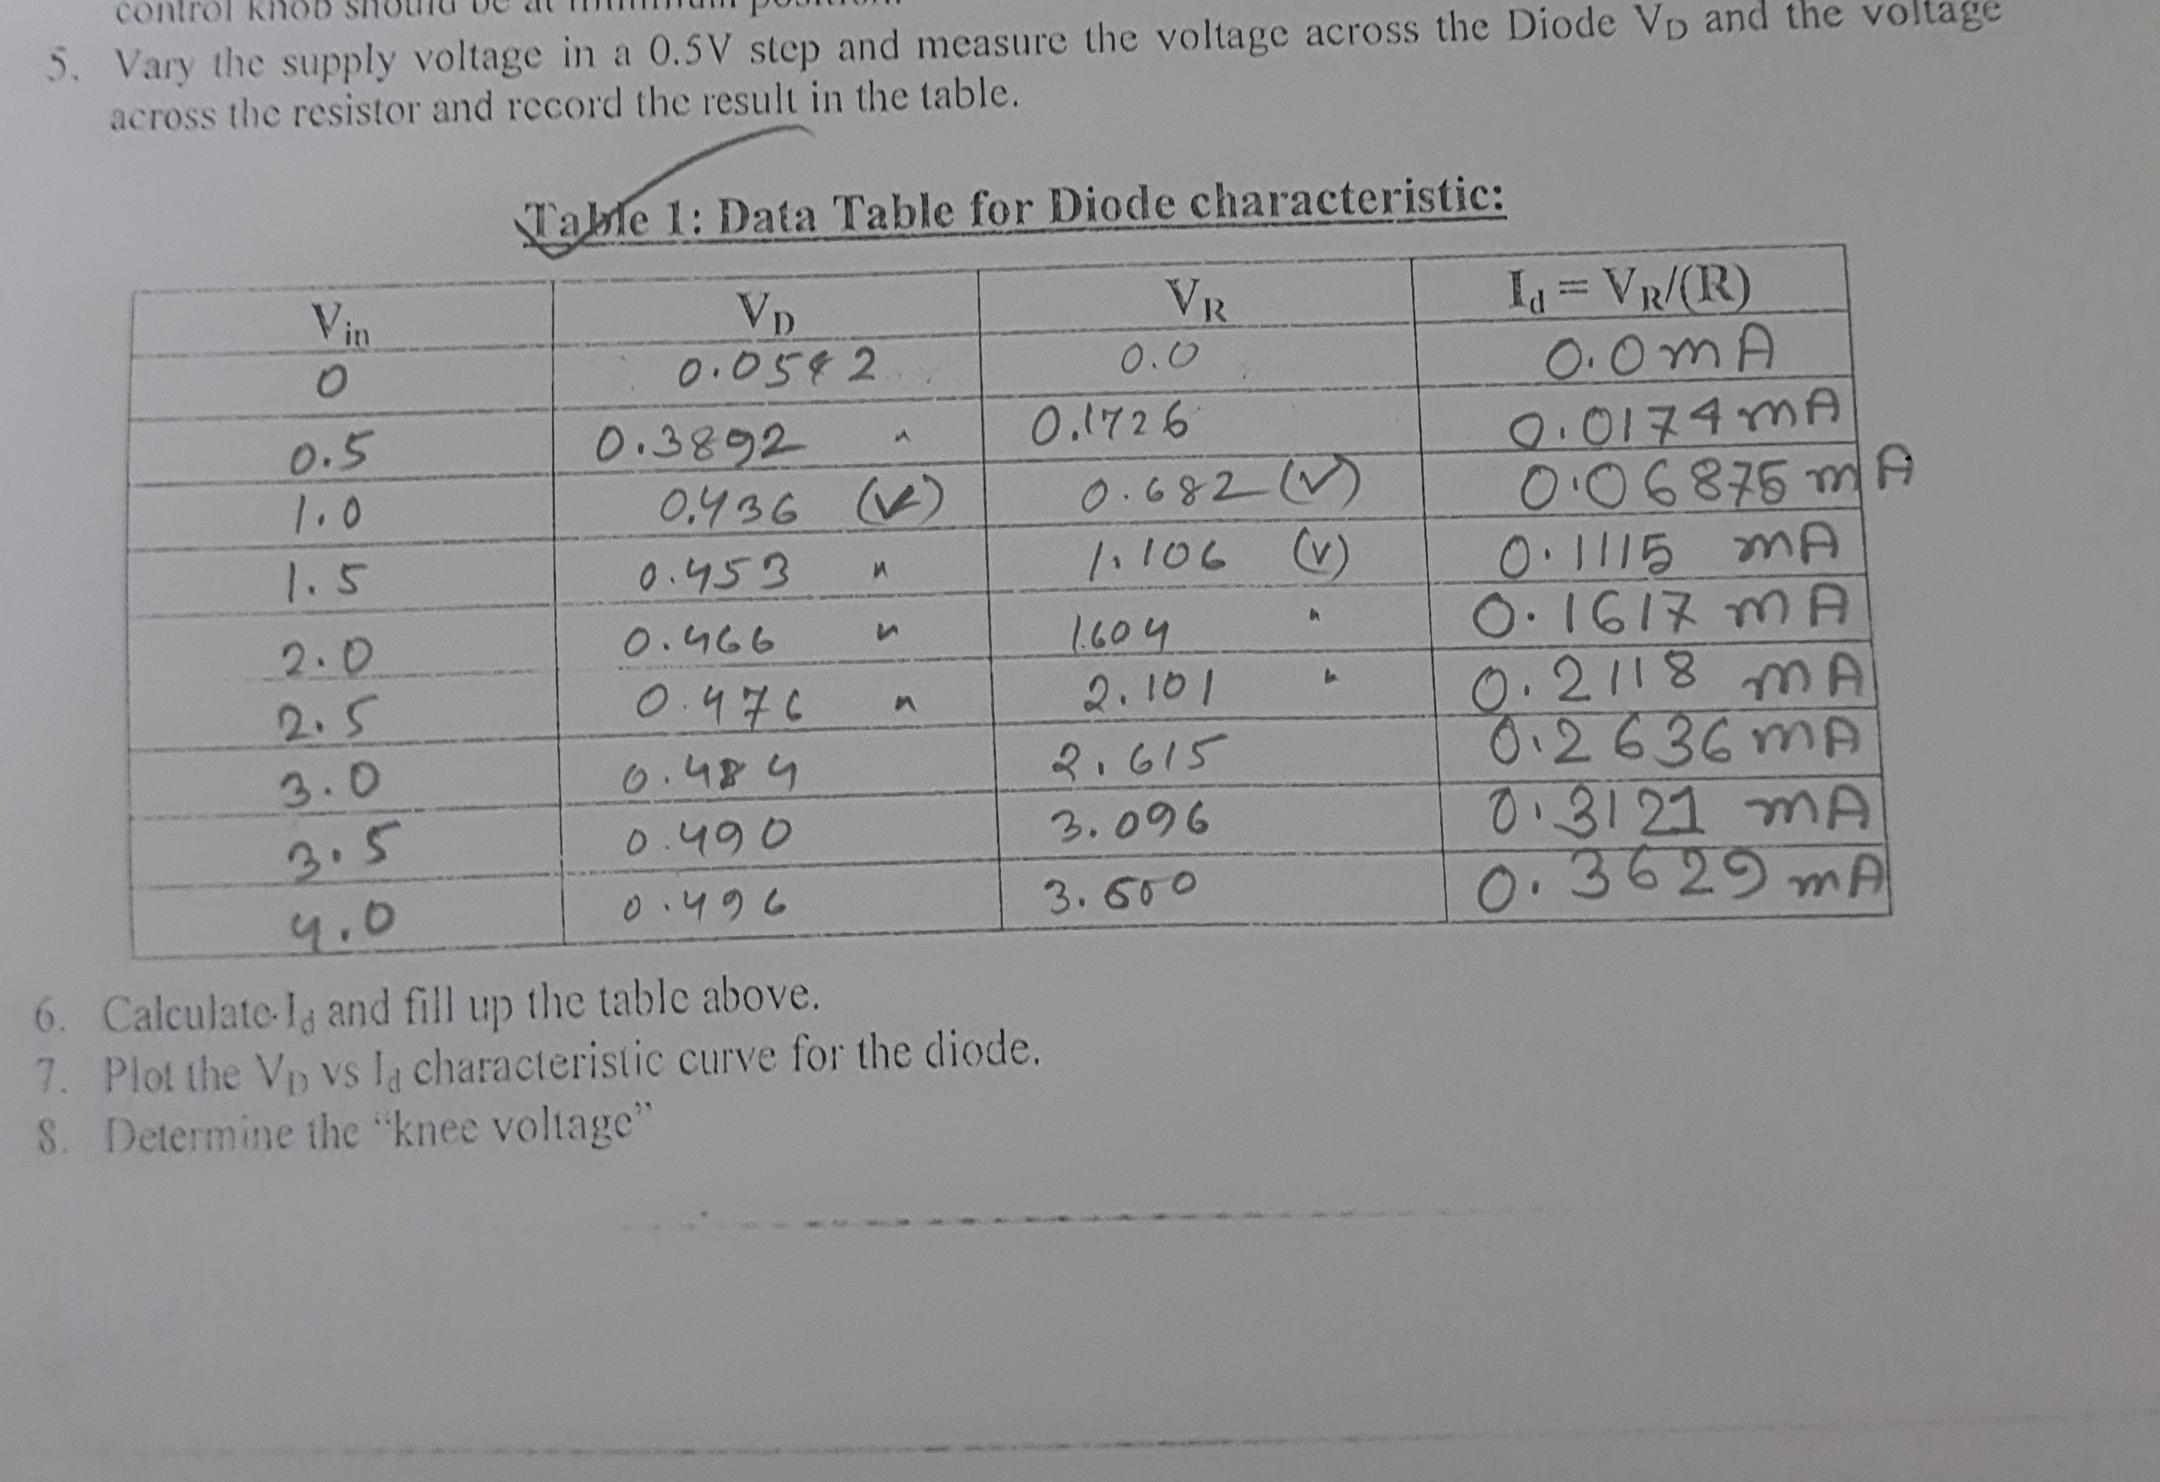 control knob should be at minimum position.
5. Vary the supply voltage in a 0.5V step and measure the voltage across the Diode VD and the voltage
across the resistor and record the result in the table.
Table 1: Data Table for Diode characteristic:
Vin VD VR Id = VR/(R)
0 0.0542 0.0 0.0 mA
0.5 0.3892 " 0.1726 0.0174 mA
1.0 0.436 (V) 0.682 (V) 0.06875 mA
1.5 0.453 " 1.106 (V) 0.1115 mA
2.0 0.466 " 1.604 " 0.1617 mA
2.5 0.476 " 2.101 " 0.2118 mA
3.0 0.484 2.615 0.2636 mA
3.5 0.490 3.096 0.3121 mA
4.0 0.496 3.600 0.3629 mA
6. Calculate Id and fill up the table above.
7. Plot the VD vs Id characteristic curve for the diode.
8. Determine the “knee voltage”